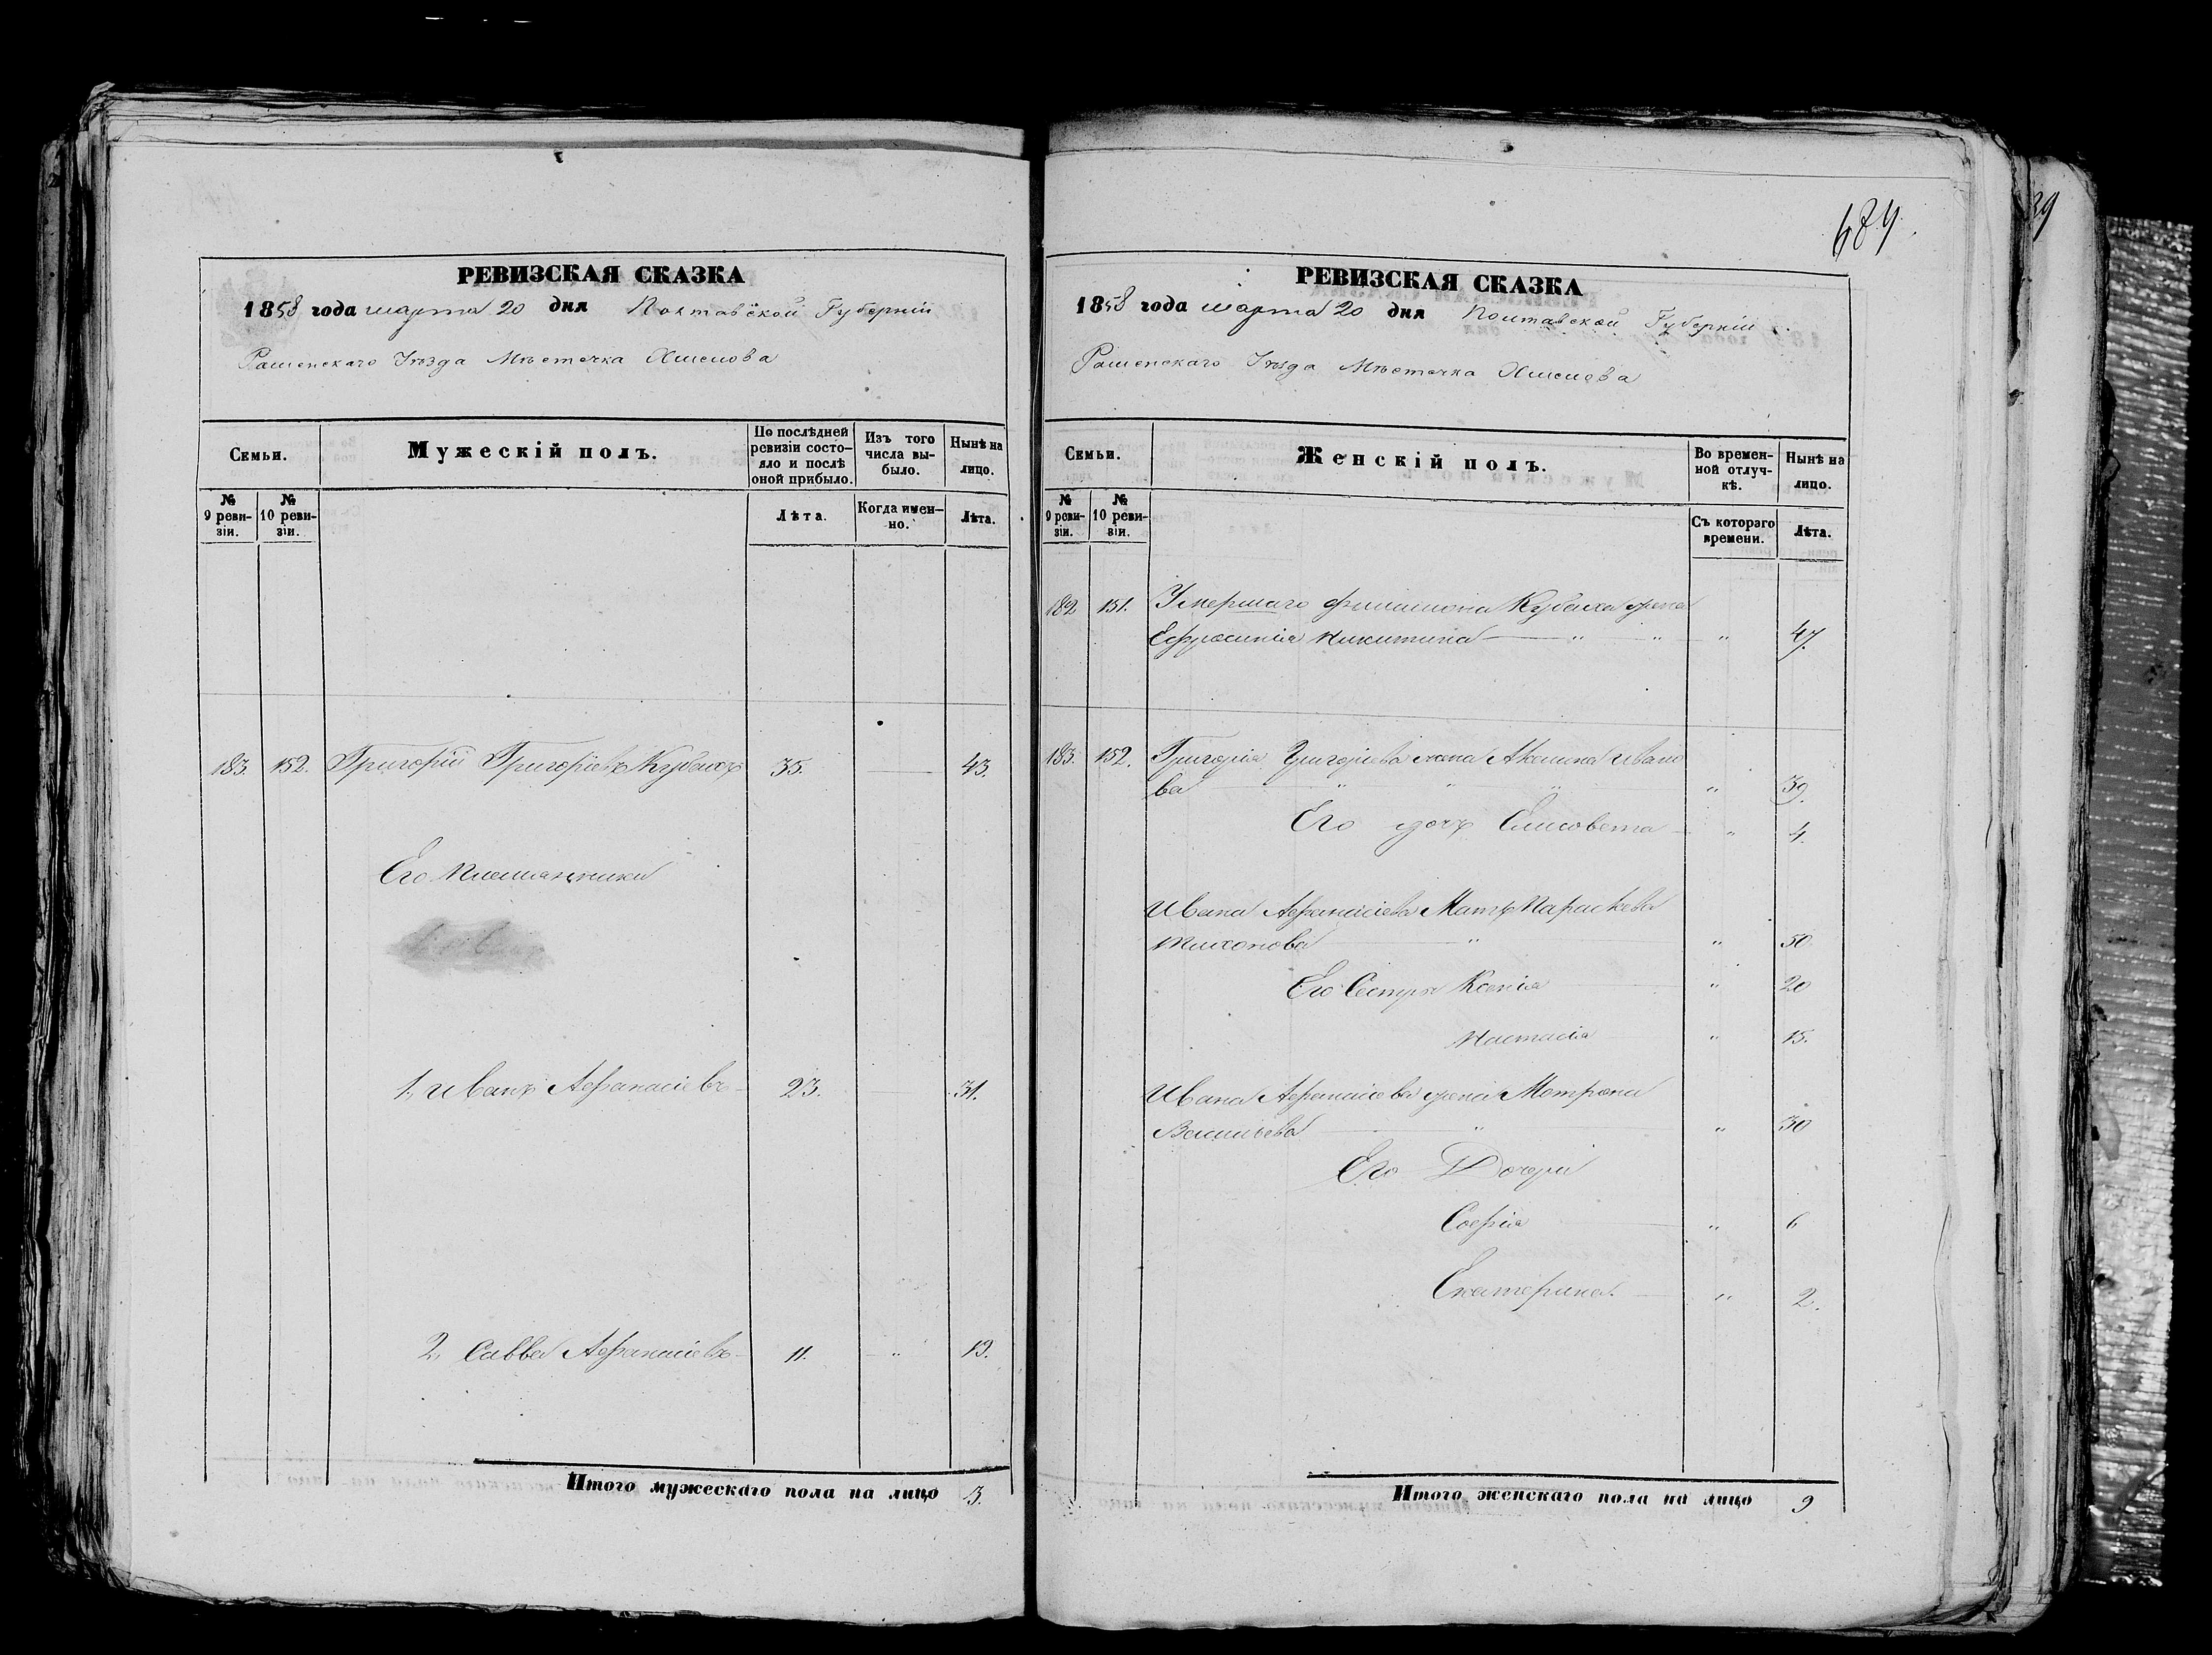 РЕВИЗСКАЯ СКАЗКА
1858 года марта 20 дня Полтавской Губерніи
Уѣзда Мѣстечка
Семьи.
Мужескій полъ.
По послѣдней ревизіи состояло и послѣ оной прибыло.
Изъ того числа выбыло.
Нынѣ на лицо.
№ 9 ревизіи.
№ 10 ревизіи.
Лѣта.
Когда именно.
Лѣта.
183. 152. Григорій Григоріевъ 35. 43.
Его племянники
1, Иванъ Афанасіевъ 23. 31.
2, Савва Афанасіевъ 11. " 19.
Итого мужескаго пола на лицо 3.
684.
РЕВИЗСКАЯ СКАЗКА
1858 года марта 20 дня Полтавской Губерніи
Уѣзда Мѣстечка
Семьи.
Женскій полъ.
Во временной отлучкѣ.
Нынѣ на лицо.
№ 9 ревизіи.
№ 10 ревизіи.
Съ котораго времени.
Лѣта.
182 151. Умершаго Филимона жена
Ефросинія Никитина " " " 47.
183. 152. Григорія Григоріева жена Акилина Ивано
ва " " " " 39.
Его дочь Елисовета " 4.
Ивана Афанасіева Мать Параскева
Тихонова " " 50
Его Сестры Ксенія " 20
Настасія " 15.
Ивана Афанасіева жена Мотрона
Васильева " " 30
Его Дочери
Софія " 6
Екатерина. " 2.
Итого женскаго пола на лицо 9
39